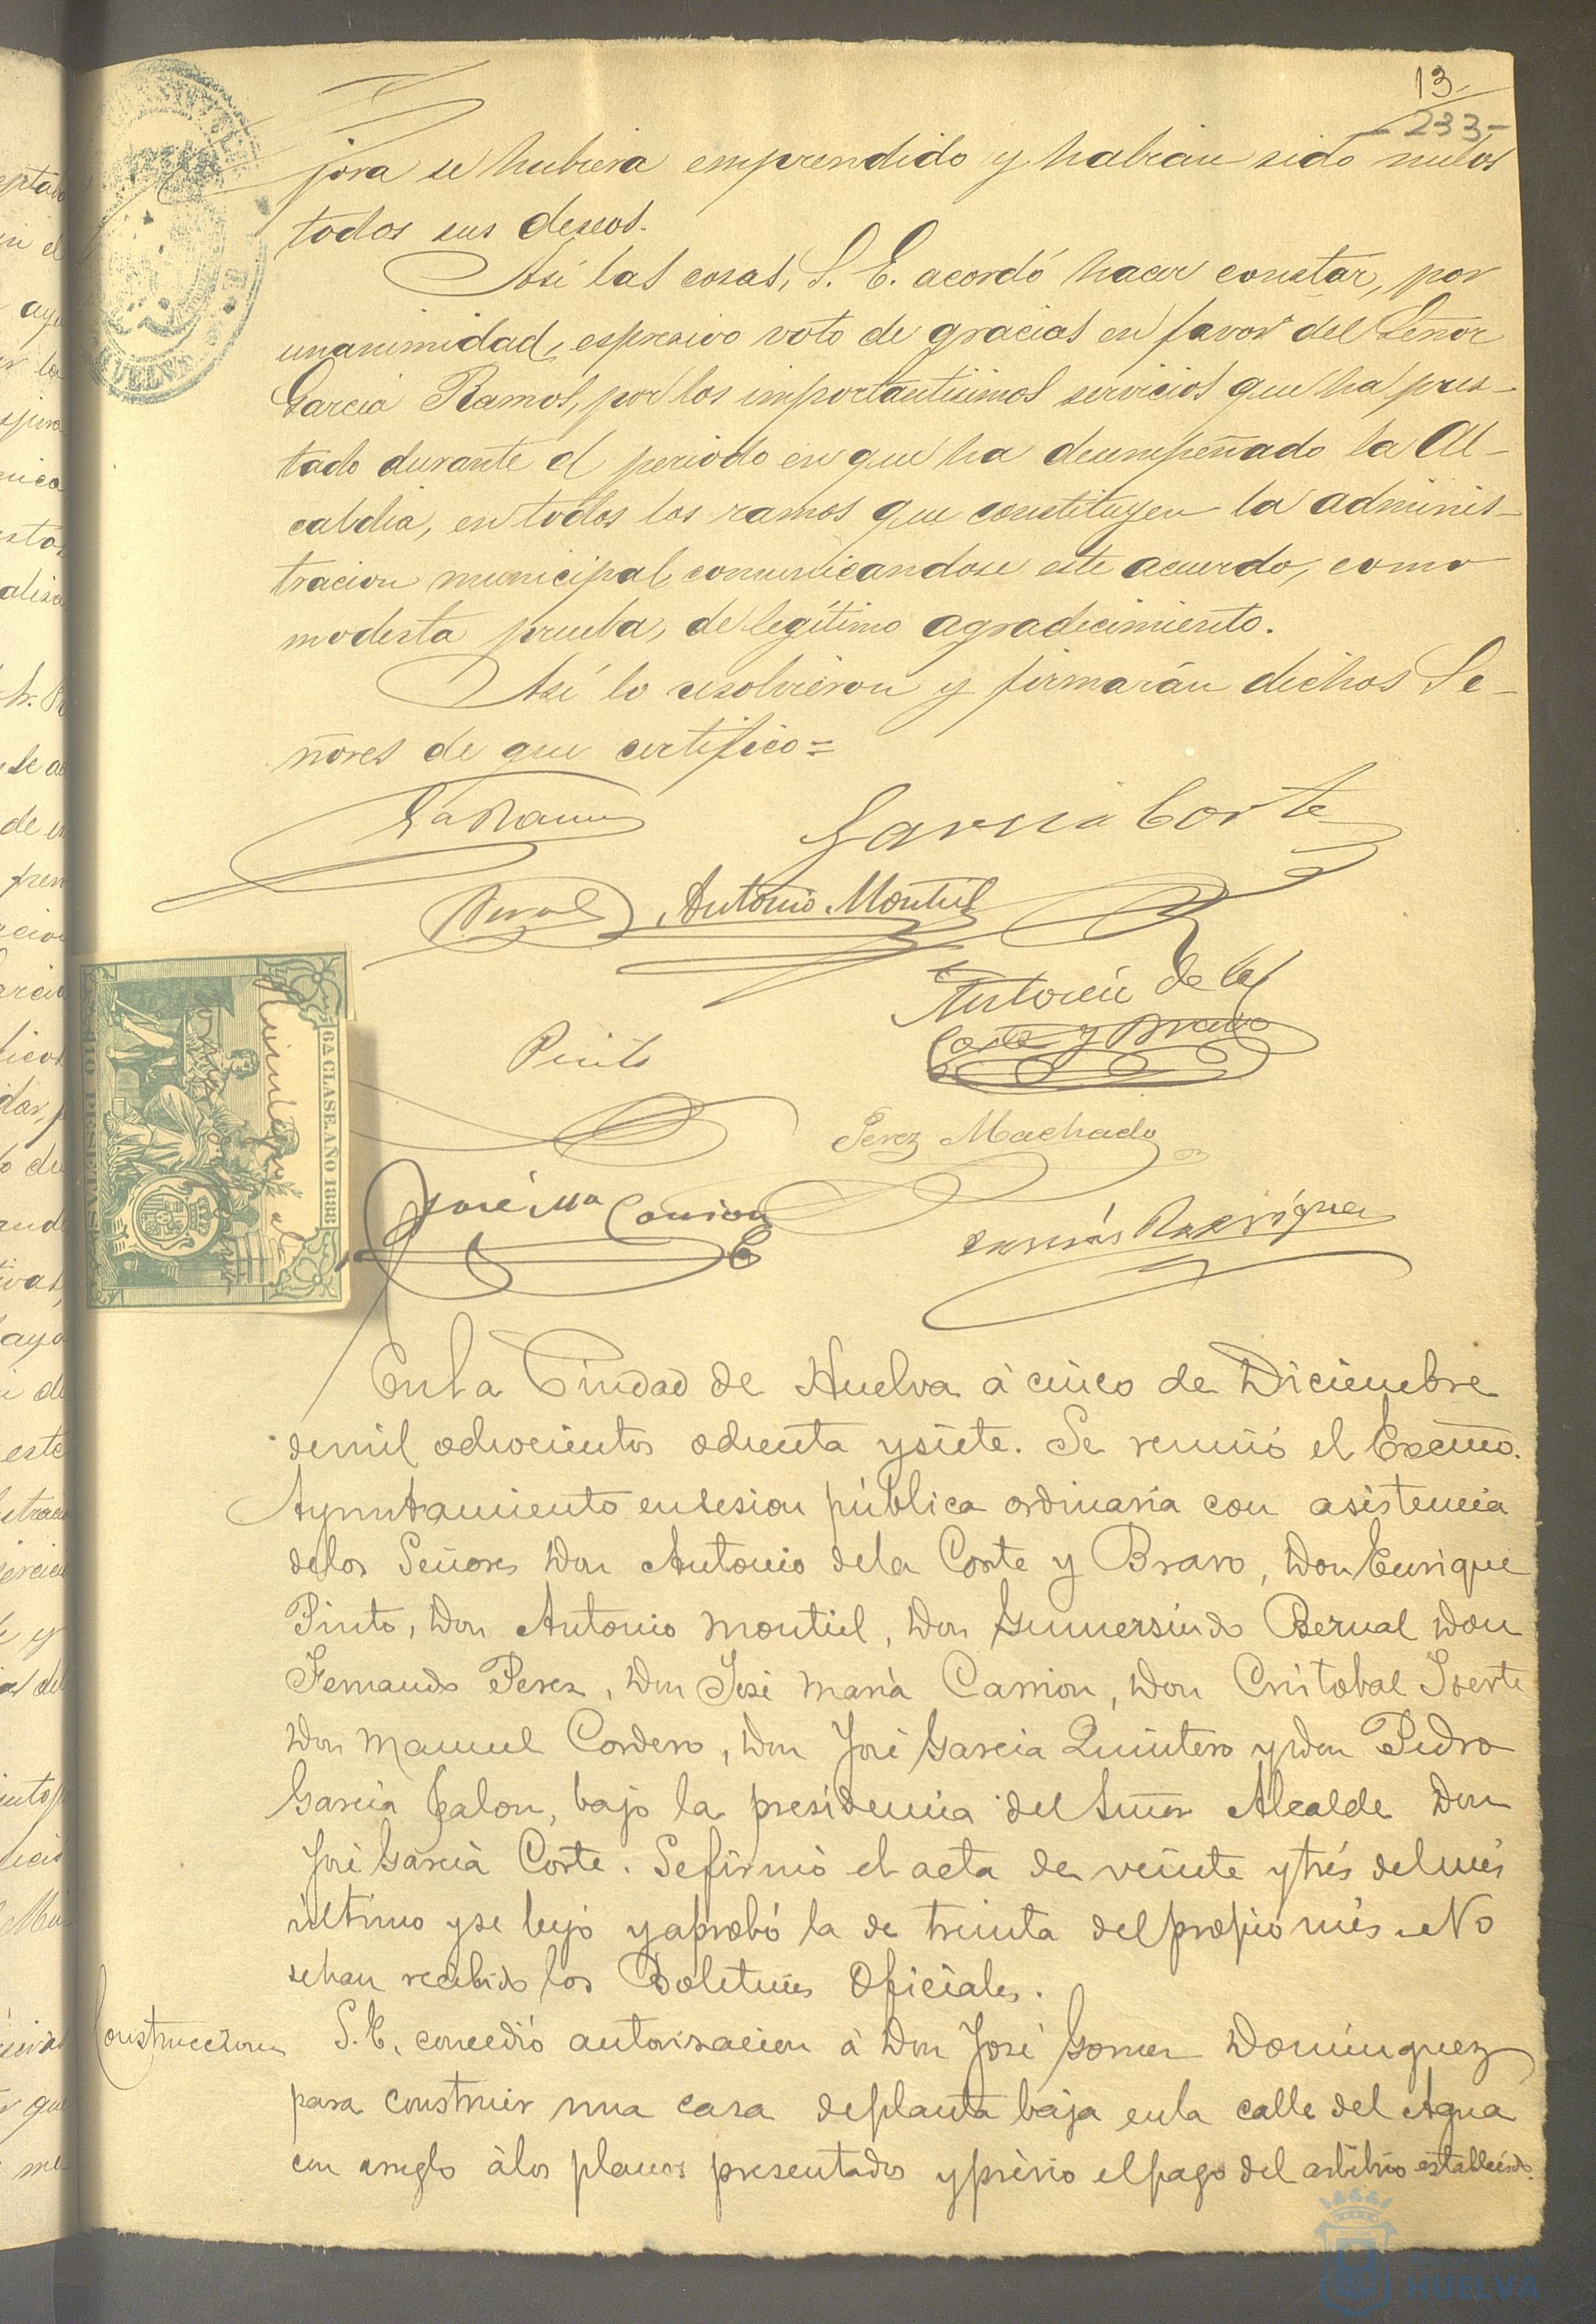 13
- 233 -
jora se hubiera emprendido y habrian sido nulos
todos sus deseos.
Así las cosas, S. E. acordó hacer constar, por
unanimidad, espresivo voto de gracias en favor del Señor
Garcia Ramos, por los importantisimos servicios que ha pres-
tado durante el periodo en que ha desempeñado la Al-
caldia, en todos los ramos que constituyen la adminis-
tracion municipal comunicandose este acuerdo, como
modesta prueba, de legítimo agradecimiento.
Así lo resolvieron y firmarán dichos Se-
ñores de que certifico=
Ga Ramos
Garcia Corte
Bernal Antonio Montiel
Antonio de la
Corte y Bravo
Pinto
Perez Machado
José Ma Carrion
Rodríguez
6A CLASE. AÑO 1888
PESETAS
HUELVA
En la Ciudad de Huelva á cinco de Diciembre
de mil ochocientos ochenta y siete. Se reunió el Excmo.
Ayuntamiento en sesion pública ordinaria con asistencia
de los Señores Don Antonio de la Corte y Bravo, Don Enrique
Pinto, Don Antonio Montiel, Don Gumersindo Bernal Don
Fernando Perez, Don José María Carrion, Don Cristobal
Don Manuel Cordero, Don José Garcia Quintero y Don Pedro
Garcia Jalon, bajo la presidencia del Señor Alcalde Don
José Garcia Corte. Se firmó el acta de veinte y trés del més
último y se leyó y aprobó la de treinta del propio més. No
se han recibido los Boletines Oficiales.
Construcciones S. E. concedió autorisacion á Don José Gomez Domínguez
para construir una casa de planta baja en la calle del Agua
con arreglo á los planos presentados y prévio el pago del arbitrio establecido.
HUELVA